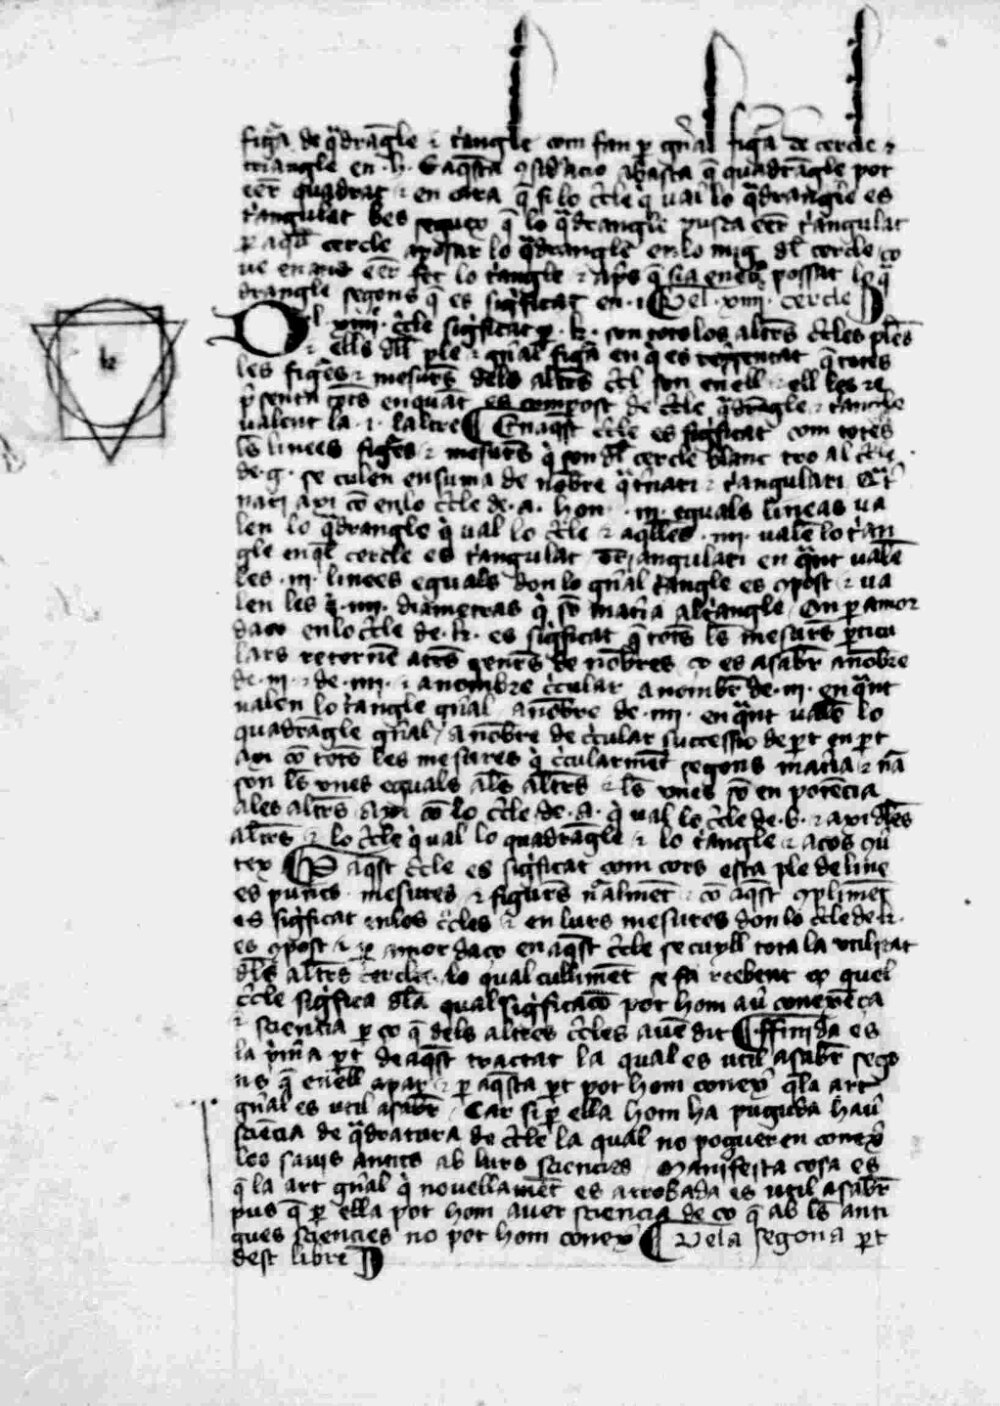 figā de qͣdrāgle ⁊ tⁱangle com fan p gñal figā de cercle ⁊
triangle en .h. E aqsta ɔsid'acio abasta q̄ quadrāgle pot
eēr quadrat ⁊ en cara q̄ si lo c̄cle q ual lo qͣdrangle es
tⁱangulat bes seguex q̄ lo qͣdrangle pusca eēr tⁱangulat
p aql̄ cercle aposat lo qͣdrangle en lo mig dl̄ cercle co
ue en axi eēr fet lo tⁱangle ⁊ aps q̄ sia en ell possat lo qͣ
drangle segons q̄ es sigⁱficat en .i. Del .xiiii. cercle
Del xiiii. c̄cle sigⁱficat p .k. son tots los altrēs c̄cles plēs
⁊ ells dll̄ ple ⁊ gñal figā en q es c̄tots
les figēs ⁊ mesurēs dels altrēs c̄cl son en ell ⁊ ell les re
pⁱsenta en quāt es compost de c̄cle qͣdrāgle ⁊ tⁱangle
ualent la .i. laltre En aqst c̄cle es sigⁱficat com totes
lēs linees figēs ⁊ mesurēs q son dl̄ cercle blanc tro al c̄cle
de .g. se culen en suma de nōbre qͣt'nari ⁊ tⁱangulari Qͣt'
nari axi cō en lo c̄cle de .a. hon .iiii. eguals lineas ua
len lo qͣdrangle q ual lo c̄cle ⁊ aqlles .iiii. ualē lo tⁱan
gle en ql̄ cercle es tⁱangulat Triangulari en qͣnt ualē
les .iii. linees eguals don lo gñal tⁱangle es ɔpost ⁊ ua
len les .iiii. diametras q sō matⁱia al tⁱangle On p amor
daco en lo c̄cle de .k. es sigⁱficat q̄ totēs lēs mesurēs pticu
lars retornē a trēs genrēs de nōbres co es a saber a nōbre
de .iii. ⁊ de .iiii. ⁊ a nombre c̄cular a nōmbrē de .iii. en qͣnt
ualen lo tⁱangle gñal a nōbre de .iiii. en qͣnt ualē lo
quadrāgle gñal a nōbre de c̄cular successio de pt en pt
axi cō totēs les mesures q c̄cularmēt segons matⁱia ⁊ nā
son lēs vnes eguals alēs altrēs ⁊ lēs vnes sō en potēcia
ales altrēs axi cō lo c̄cle de .a. q ual lo c̄cle de .b. ⁊ axi dlēs
altrēs ⁊ lo c̄cle q ual lo quadrāgle ⁊ lo tⁱangle ⁊ acos ɔu'
tex P aqst c̄cle es sigⁱficat com cors esta ple de line
es punts mesures ⁊ figurēs nͣalmēt ⁊ cō aqst ɔplimēt
es sigⁱficat en los c̄cles ⁊ en lurs mesures don lo c̄cle de .k.
es ɔpost ⁊ p amor daco en aqst c̄cle se cuyll tota la vtilitat
dlēs altrēs cercles lo qual cullimēt se fa reebent co quel
c̄cle sigⁱfica dla qual sigⁱficacō pot hom au' conexēca
⁊ sciencia p co q̄ dels altres c̄cles auē dit Ffinida es
la pⁱm̄a pt de aqst tractat la qual es util a sabēr sego
ns q̄ en ell apar ⁊ p aqsta pt pot hom conex' q la art
gñal es util a sabēr Car si p ella hom ha puguda hau'
sciēcia de qͣdratura de c̄cle la qual no pogueren conex'
los sauis antics ab lurs sciencies manifesta cosa es
q̄ la art gñal q nouellamēt es atrobada es util a sabēr
pus q̄ p ella pot hom auer sciencia de co q̄ ab lēs anti
gues sciencies no pot hom conex' De la segona pt
dest libre
k